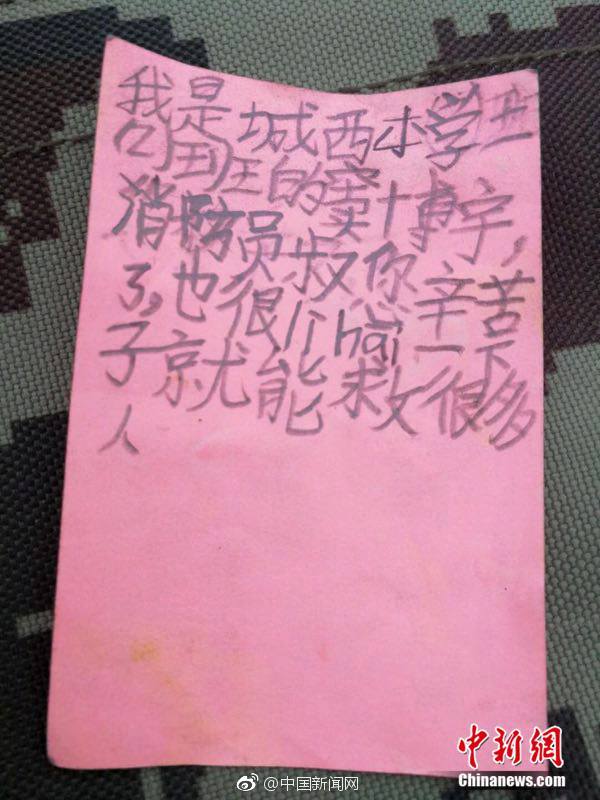 我是城西小学
班的窦博宇,
消防员叔你辛苦
了,也很li hai一下
子就能救很多
人
@中国新闻网
中新網
Chinanews.com